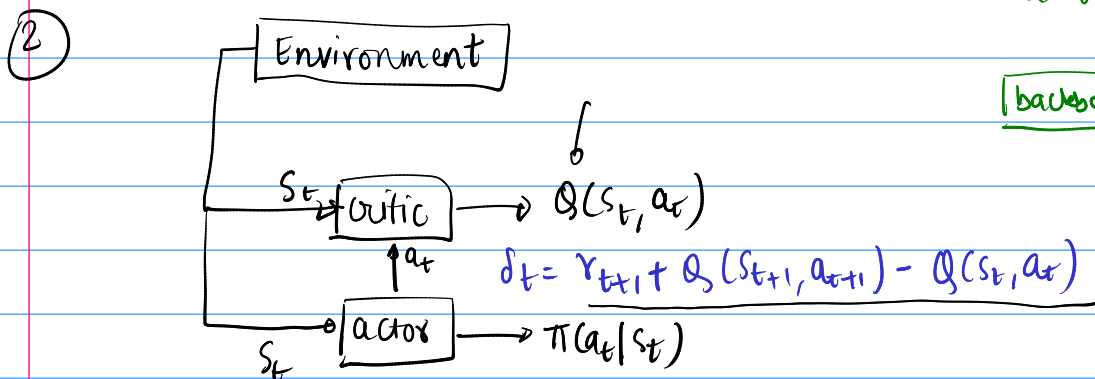 2
Environment
S_t critic → Q(S_t, a_t)
a_t
δ_t = r_{t+1} + Q(S_{t+1}, a_{t+1}) - Q(S_t, a_t)
S_t actor → π(a_t|S_t)